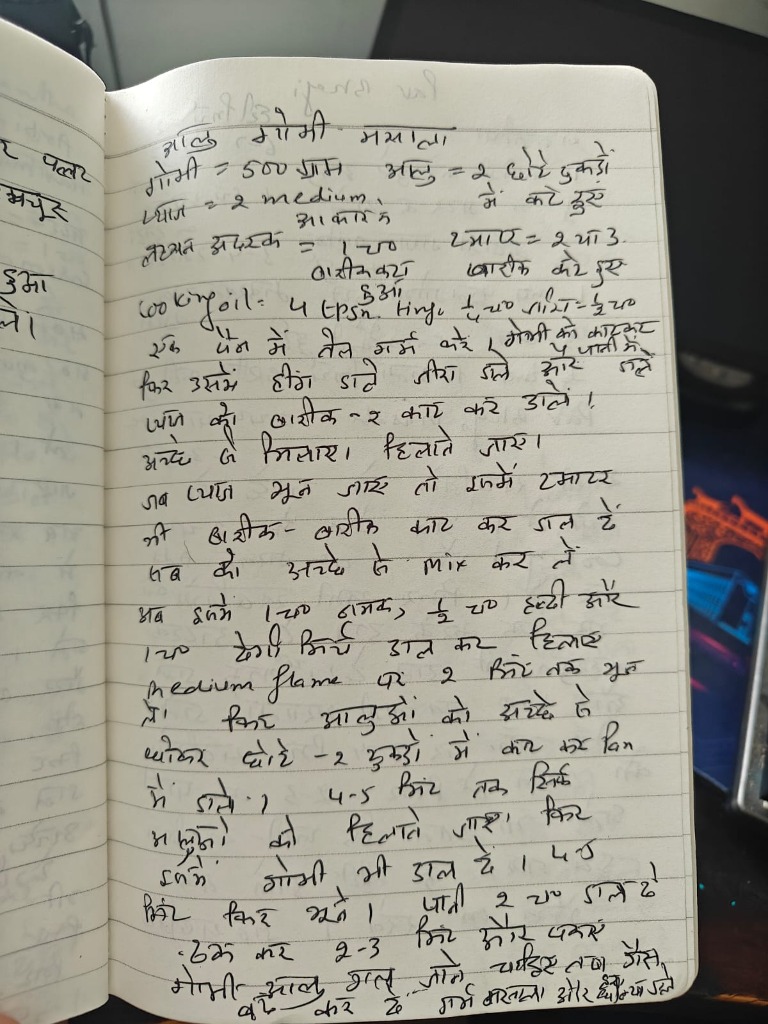 र पलर
मचूर
हुआ
ले।
आलु गोभी मसाला
गोभी = 500 ग्राम आलु = २ छोटे टुकड़ों
में कटे हुए
प्याज = २ medium
आकार के
लहसन अदरक = 1 च० टमाटर = २ या 3
बारीक कटा बारीक कटे हुए
हुआ
Cooking oil = 4 tpsn. Hing ¼ च० जीरा = ½ च०
एक पैन में तेल गर्म करें। गोभी को काटकर
पानी में
फिर उसमें हींग डाले जीरा डाले और डालें
प्याज को बारीक-२ काट कर डालें।
अच्छे से मिलाए। हिलाते जाए।
जब प्याज भून जाए तो इसमें टमाटर
भी बारीक-बारीक काट कर डाल दें
सब को अच्छे से mix कर लें
अब इसमें 1 च० नमक, ½ च० हल्दी और
1 च० देगी मिर्च डाल कर हिलाए
medium flame पर २ मिंट तक भून
ले। फिर आलुओं को अच्छे से
धोकर छोटे-२ टुकड़ो में काट कर Pan
में डाले। 4-5 मिंट तक सिर्फ
आलुओं को हिलाते जाए। फिर
इसमें गोभी भी डाल दें। 4-5
मिंट फिर भूने। पानी २ च० डाल दे
ढक कर २-3 मिंट और पकाएं
गोभी आलु गल जाने चाहिए तब गैस
बंद कर दें गर्म मसाला और धनिया डाले